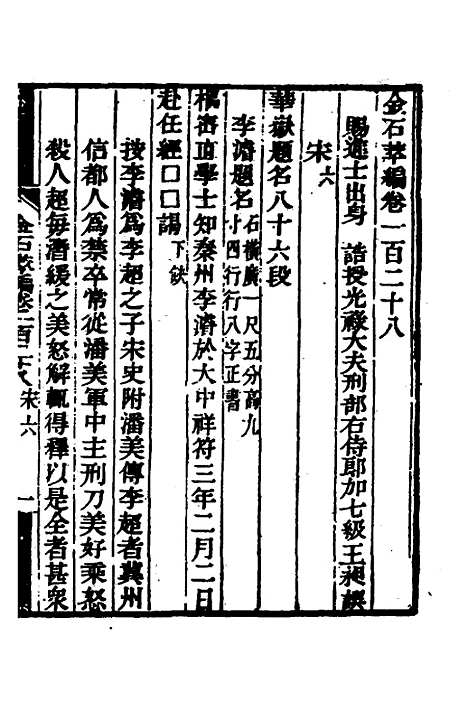 金石萃編卷一百二十八
賜進士出身 誥授光祿大夫刑部右侍郎加七級王昶譔
宋六
華嶽題名八十六段
李濬題名石橫廣一尺五分高九寸四行行八字正書
樞密直學士知秦州李濬於大中祥符三年二月二日
赴任經口口謁下缺
按李濬爲李超之子宋史附潘美傳李超者冀州
信都人爲禁卒常從潘美軍中主刑刀美好乘怒
殺人超每濳緩之美怒解輒得釋以是全者甚衆
金石萃編卷一百二十八 宋六 一